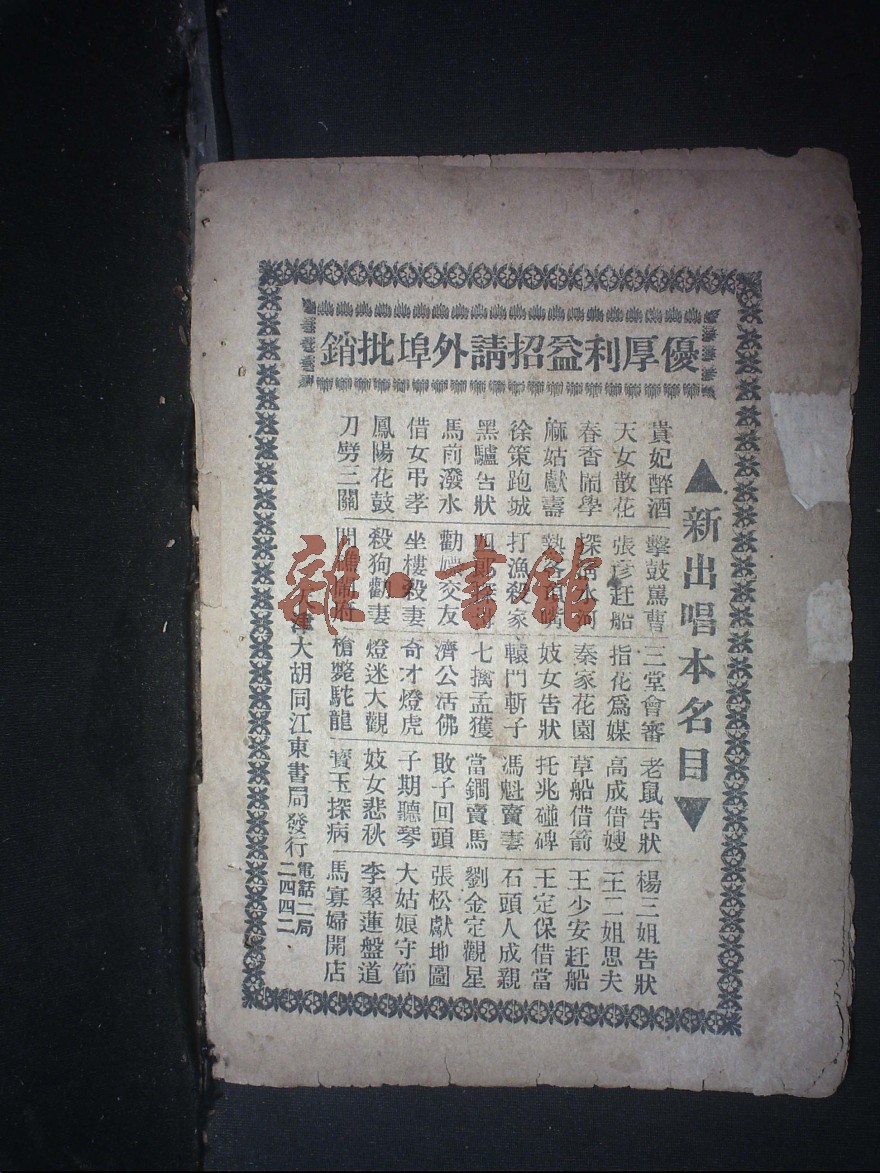 優厚利益招請外埠批銷
▲新出唱本名目▼
貴妃醉酒 擊鼓罵曹 三堂會審 老鼠告狀 楊三姐告狀
天女散花 張彥赶船 指花爲媒 高成借嫂 王二姐思夫
春香鬧學 秦家花園 草船借箭 王少安赶船
麻姑獻壽 妓女告狀 托兆碰碑 王定保借當
徐策跑城 打漁殺家 轅門斬子 馮魁賣妻 石頭人成親
黑驢告狀 七擒孟獲 當鐧賣馬 劉金定觀星
馬前潑水 勸嫖交友 濟公活佛 敗子回頭 張松獻地圖
借女弔孝 坐樓殺妻 奇才燈虎 子期聽琴 大姑娘守節
鳳陽花鼓 殺狗勸妻 燈迷大觀 妓女悲秋 李翠蓮盤道
刀劈三關 槍斃駝龍 寶玉探病 馬寡婦開店
津大胡同江東書局發行
電話二局
二四四二
雜·書館